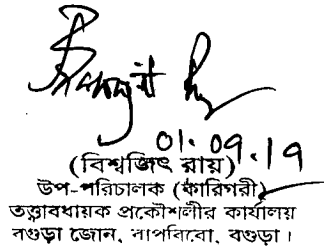 01.09.19
(বিশ্বজিৎ রায়)
উপ-পরিচালক (কারিগরী)
তত্ত্বাবধায়ক প্রকৌশলীর কার্যালয়
বগুড়া জোন, বাপবিবো, বগুড়া।